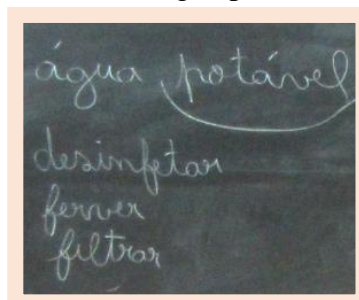 água potável
desinfetar
ferver
filtrar